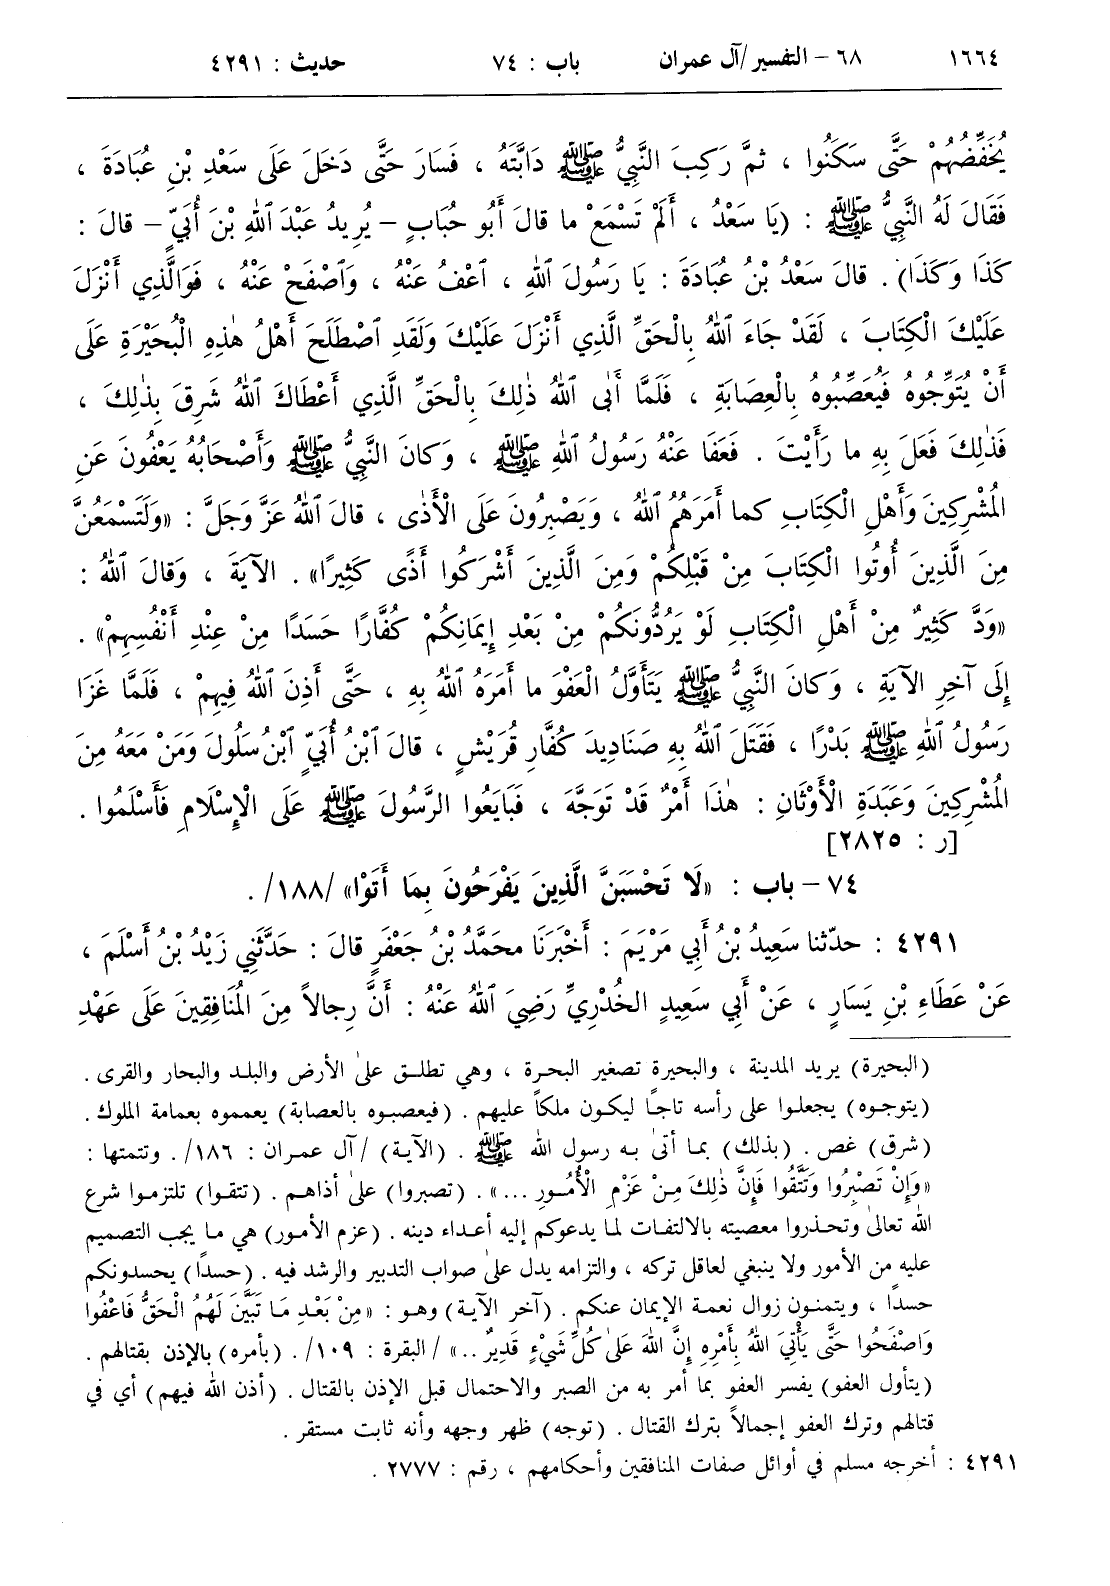 ١٦٦٤ ٦٨ - التفسير/آل عمران باب : ٧٤ حديث : ٤٢٩١
يُخَفِّضُهُمْ حَتَّى سَكَنُوا ، ثمَّ رَكِبَ النَّبِيُّ ﷺ دَابَّتَهُ ، فَسَارَ حَتَّى دَخَلَ عَلَى سَعْدِ بْنِ عُبَادَةَ ،
فَقَالَ لَهُ النَّبِيُّ ﷺ : (يَا سَعْدُ ، أَلَمْ تَسْمَعْ ما قالَ أَبُو حُبَابٍ - يُرِيدُ عَبْدَ اللهِ بْنَ أُبَيٍّ - قالَ :
كَذَا وَكَذَا) . قالَ سَعْدُ بْنُ عُبَادَةَ : يَا رَسُولَ اللهِ ، اعْفُ عَنْهُ ، وَاصْفَحْ عَنْهُ ، فَوَالَّذِي أَنْزَلَ
عَلَيْكَ الْكِتَابَ ، لَقَدْ جَاءَ اللهُ بِالْحَقِّ الَّذِي أَنْزَلَ عَلَيْكَ وَلَقَدِ اصْطَلَحَ أَهْلُ هٰذِهِ الْبُحَيْرَةِ عَلَى
أَنْ يُتَوِّجُوهُ فَيُعَصِّبُوهُ بِالْعِصَابَةِ ، فَلَمَّا أَبَى اللهُ ذٰلِكَ بِالْحَقِّ الَّذِي أَعْطَاكَ اللهُ شَرِقَ بِذٰلِكَ ،
فَذٰلِكَ فَعَلَ بِهِ ما رَأَيْتَ . فَعَفَا عَنْهُ رَسُولُ اللهِ ﷺ ، وَكانَ النَّبِيُّ ﷺ وَأَصْحَابُهُ يَعْفُونَ عَنِ
المُشْرِكِينَ وَأَهْلِ الْكِتَابِ كما أَمَرَهُمُ اللهُ ، وَيَصْبِرُونَ عَلَى الْأَذَى ، قالَ اللهُ عَزَّ وَجَلَّ : «وَلَتَسْمَعُنَّ
مِنَ الَّذِينَ أُوتُوا الْكِتَابَ مِنْ قَبْلِكُمْ وَمِنَ الَّذِينَ أَشْرَكُوا أَذًى كَثِيرًا» . الآيَةَ ، وَقالَ اللهُ :
«وَدَّ كَثِيرٌ مِنْ أَهْلِ الْكِتَابِ لَوْ يَرُدُّونَكُمْ مِنْ بَعْدِ إِيمَانِكُمْ كُفَّارًا حَسَدًا مِنْ عِنْدِ أَنْفُسِهِمْ» .
إِلَى آخِرِ الآيَةِ ، وَكانَ النَّبِيُّ ﷺ يَتَأَوَّلُ الْعَفْوَ ما أَمَرَهُ اللهُ بِهِ ، حَتَّى أَذِنَ اللهُ فِيهِمْ ، فَلَمَّا غَزَا
رَسُولُ اللهِ ﷺ بَدْرًا ، فَقَتَلَ اللهُ بِهِ صَنَادِيدَ كُفَّارِ قُرَيْشٍ ، قالَ ابْنُ أُبَيٍّ ابْنُ سَلُولَ وَمَنْ مَعَهُ مِنَ
المُشْرِكِينَ وَعَبَدَةِ الْأَوْثَانِ : هٰذَا أَمْرٌ قَدْ تَوَجَّهَ ، فَبَايَعُوا الرَّسُولَ ﷺ عَلَى الْإِسْلَامِ فَأَسْلَمُوا .
[ر : ٢٨٢٥]
٧٤ - باب : «لَا تَحْسَبَنَّ الَّذِينَ يَفْرَحُونَ بِمَا أَتَوْا» /١٨٨/ .
٤٢٩١ : حدّثنا سَعِيدُ بْنُ أَبِي مَرْيَمَ : أَخْبَرَنَا محَمَّدُ بْنُ جَعْفَرٍ قالَ : حَدَّثَنِي زَيْدُ بْنُ أَسْلَمَ ،
عَنْ عَطَاءِ بْنِ يَسَارٍ ، عَنْ أَبِي سَعِيدٍ الخُدْرِيِّ رَضِيَ اللهُ عَنْهُ : أَنَّ رِجالاً مِنَ المُنَافِقِينَ عَلَى عَهْدِ
(البحيرة) يريد المدينة ، والبحيرة تصغير البحرة ، وهي تطلق على الأرض والبلد والبحار والقرى .
(يتوجوه) يجعلوا على رأسه تاجًا ليكون ملكًا عليهم . (فيعصبوه بالعصابة) يعمموه بعمامة الملوك .
(شرق) غص . (بذلك) بما أتى به رسول الله ﷺ . (الآية) /آل عمران : ١٨٦/ . وتتمتها :
«وَإِنْ تَصْبِرُوا وَتَتَّقُوا فَإِنَّ ذَلِكَ مِنْ عَزْمِ الْأُمُورِ ...» . (تصبروا) على أذاهم . (تتقوا) تلتزموا شرع
الله تعالى وتحذروا معصيته بالالتفات لما يدعوكم إليه أعداء دينه . (عزم الأمور) هي ما يجب التصميم
عليه من الأمور ولا ينبغي لعاقل تركه ، والتزامه يدل على صواب التدبير والرشد فيه . (حسدًا) يحسدونكم
حسدًا ، ويتمنون زوال نعمة الإيمان عنكم . (آخر الآية) وهو : «مِنْ بَعْدِ مَا تَبَيَّنَ لَهُمُ الْحَقُّ فَاعْفُوا
وَاصْفَحُوا حَتَّى يَأْتِيَ اللهُ بِأَمْرِهِ إِنَّ اللهَ عَلَى كُلِّ شَيْءٍ قَدِيرٌ ..» /البقرة : ١٠٩/ . (بأمره) بالإذن بقتالهم .
(يتأول العفو) يفسر العفو بما أمر به من الصبر والاحتمال قبل الإذن بالقتال . (أذن الله فيهم) أي في
قتالهم وترك العفو إجمالاً بترك القتال . (توجه) ظهر وجهه وأنه ثابت مستقر .
٤٢٩١ : أخرجه مسلم في أوائل صفات المنافقين وأحكامهم ، رقم : ٢٧٧٧ .